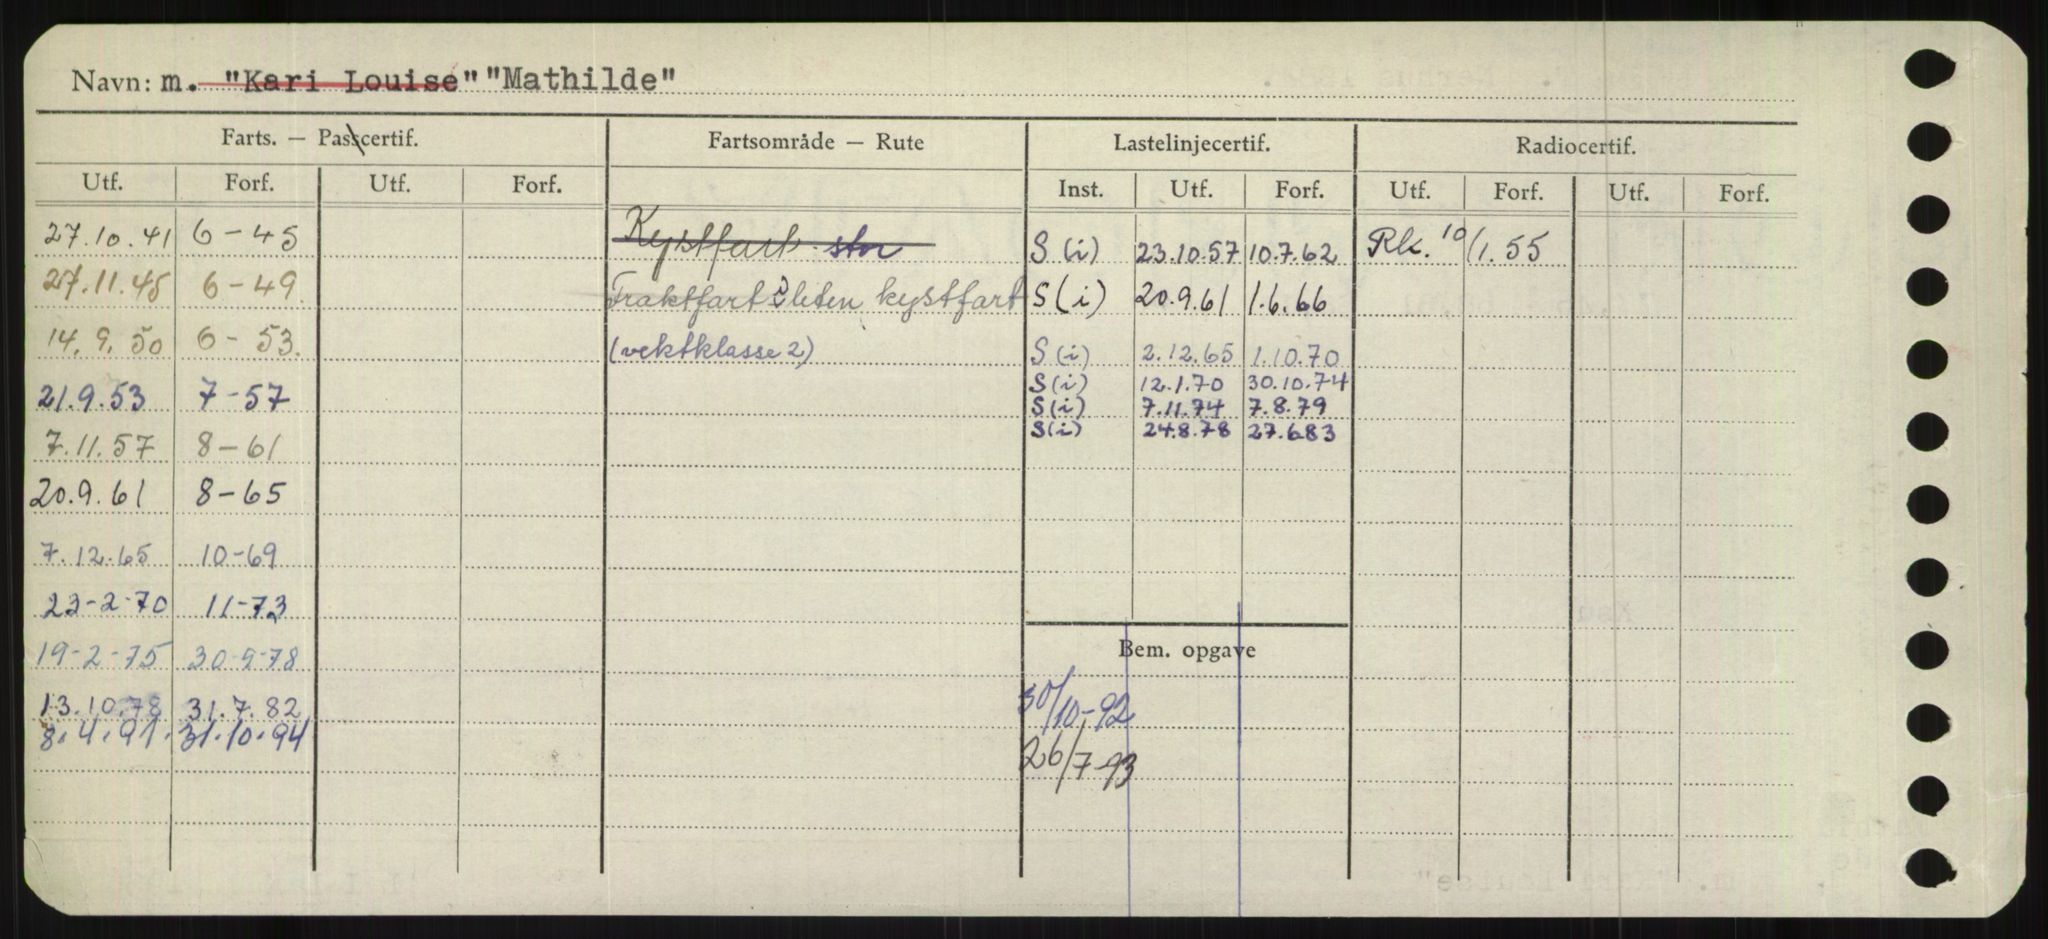 Navn: m. "Kari Louise" "Mathilde"
Farts. — Passcertif. Fartsområde — Rute Lastelinjecertif. Radiocertif.
Utf. Forf. Utf. Forf. Inst. Utf. Forf. Utf. Forf. Utf. Forf.
27.10.41 6-45 Kystfart stor S (i) 23.10.57 10.7.62 Rk. 10/1.55
27.11.45 6-49. Fraktfart i liten kystfart S (i) 20.9.61 1.6.66
14.9.50 6-53. (vektklasse 2) S (i) 2.12.65 1.10.70
S (i) 12.1.70 30.10.74
21.9.53 7-57 S (i) 7.11.74 7.8.79
7.11.57 8-61 S (i) 24.8.78 27.6.83
20.9.61 8-65
7.12.65 10-69
23-2-70 11-73
19-2-75 30-9-78 Bem. opgave
13.10.78 31.7.82 30/10-92
8.4.91. 31.10.94 26/7-93